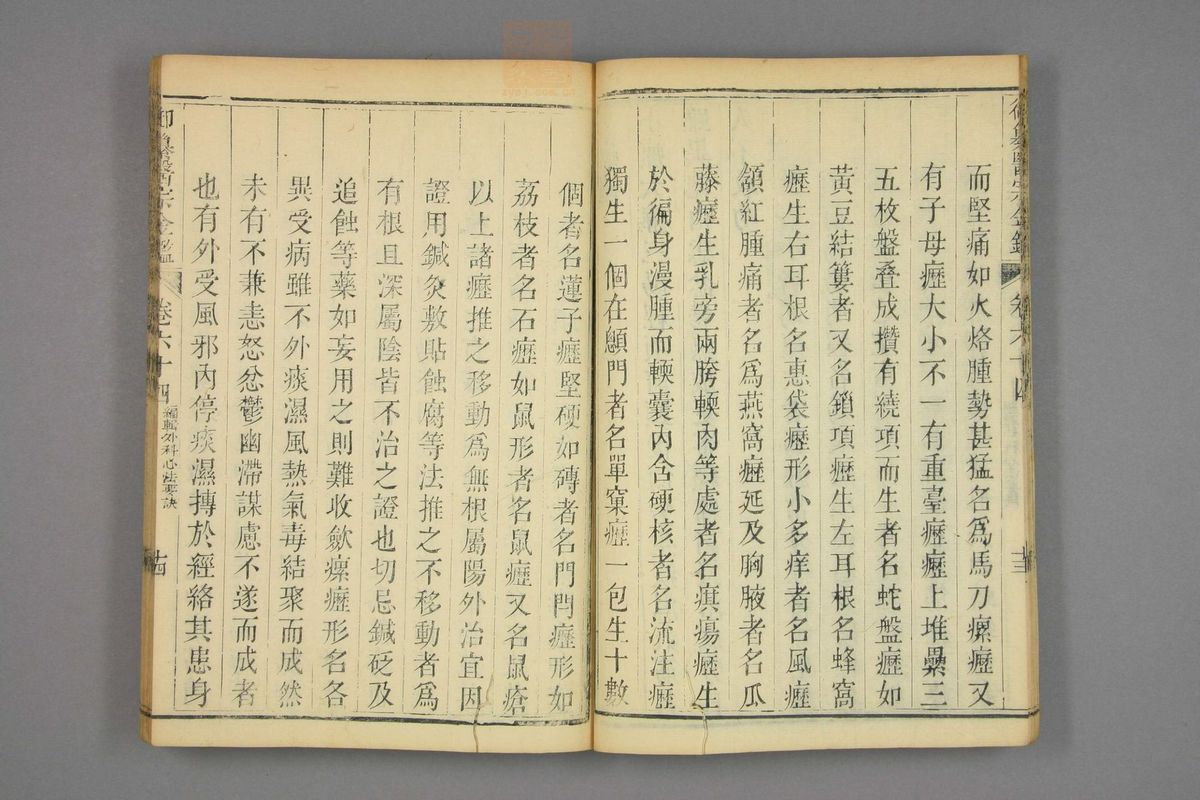 而堅痛如火烙腫勢甚猛名爲馬刀瘰癧又
有子母癧大小不一有重臺癧癧上堆壘三
五枚盤叠成攢有繞項而生者名蛇盤癧如
黃豆結簍者又名鎖項癧生左耳根名蜂窩
癧生右耳根名惠袋癧形小多痒者名風癧
頷紅腫痛者名爲燕窩癧延及胸腋者名瓜
藤癧生乳旁兩胯輭肉等處者名㾵瘍癧生
於徧身漫腫而輭囊內含硬核者名流注癧
獨生一個在顖門者名單窠癧一包生十數
御纂醫宗金鑑
卷六十四
編輯外科心法要訣
苗
個者名蓮子癧堅硬如磚者名門閂癧形如
荔枝者名石癧如鼠形者名鼠癧又名鼠瘡
以上諸癧推之移動爲無根屬陽外治宜因
證用鍼灸敷貼蝕腐等法推之不移動者爲
有根且深屬陰皆不治之證也切忌鍼砭及
追蝕等藥如妄用之則難收歛瘰癧形名各
異受病雖不外痰濕風熱氣毒結聚而成然
未有不兼恚怒忿鬱幽滯謀慮不遂而成者
也有外受風邪內停痰濕搏於經絡其患身